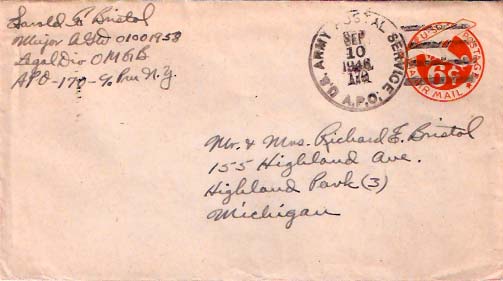 Harold F Bristol
Major AGD 01001958
Legal Div OMGB
APO-170-c/o Pm N.Y.
U.S. ARMY POSTAL SERVICE
A.P.O.
SEP
10
1946
U.S. POSTAGE
6¢
AIR MAIL
Mr. & Mrs. Richard F. Bristol
155 Highland Ave.
Highland Park (3)
Michigan